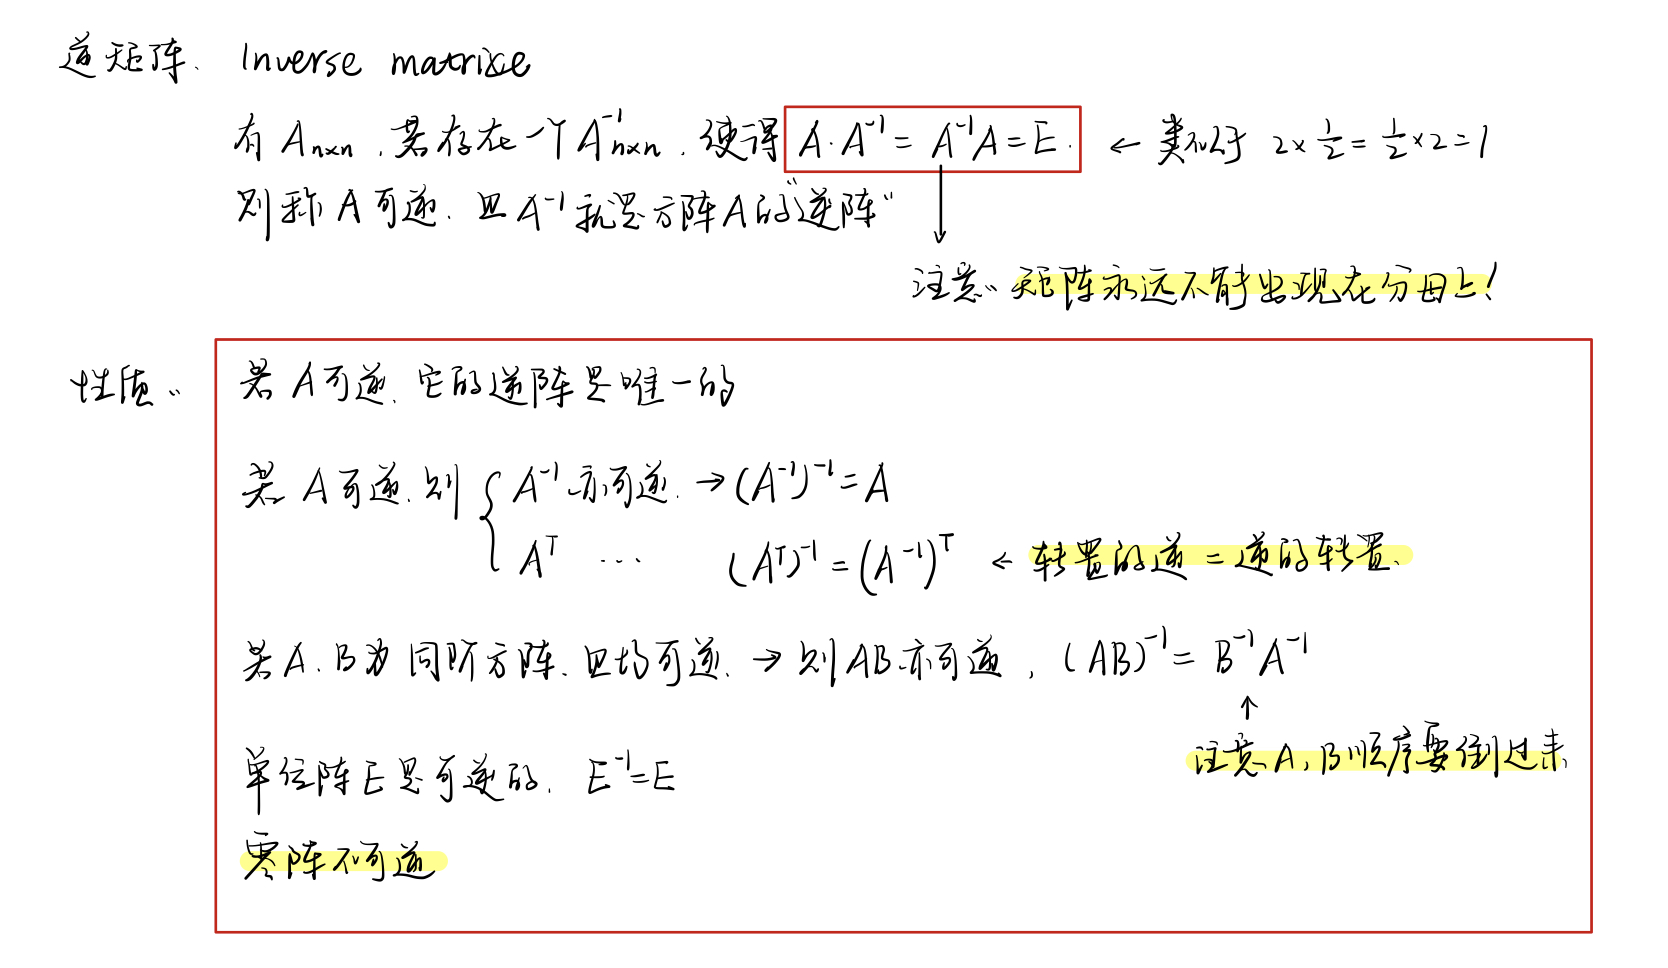 逆矩阵. Inverse matrixe
有 Aₙₓₙ, 若存在一个 A⁻¹ₙₓₙ, 使得 A·A⁻¹ = A⁻¹A = E. ← 类似于 2×½ = ½×2 = 1
则称 A 可逆. 且 A⁻¹ 就是方阵 A 的"逆阵"
↓
注意: 矩阵永远不能出现在分母上!
性质: 若 A 可逆. 它的逆阵是唯一的
若 A 可逆. 则 { A⁻¹ 亦可逆. → (A⁻¹)⁻¹ = A
Aᵀ ... (Aᵀ)⁻¹ = (A⁻¹)ᵀ ← 转置的逆 = 逆的转置.
若 A. B 为同阶方阵. 且均可逆. → 则 AB 亦可逆, (AB)⁻¹ = B⁻¹A⁻¹
↑
注意 A, B 顺序要倒过来
单位阵 E 是可逆的. E⁻¹ = E
零阵不可逆